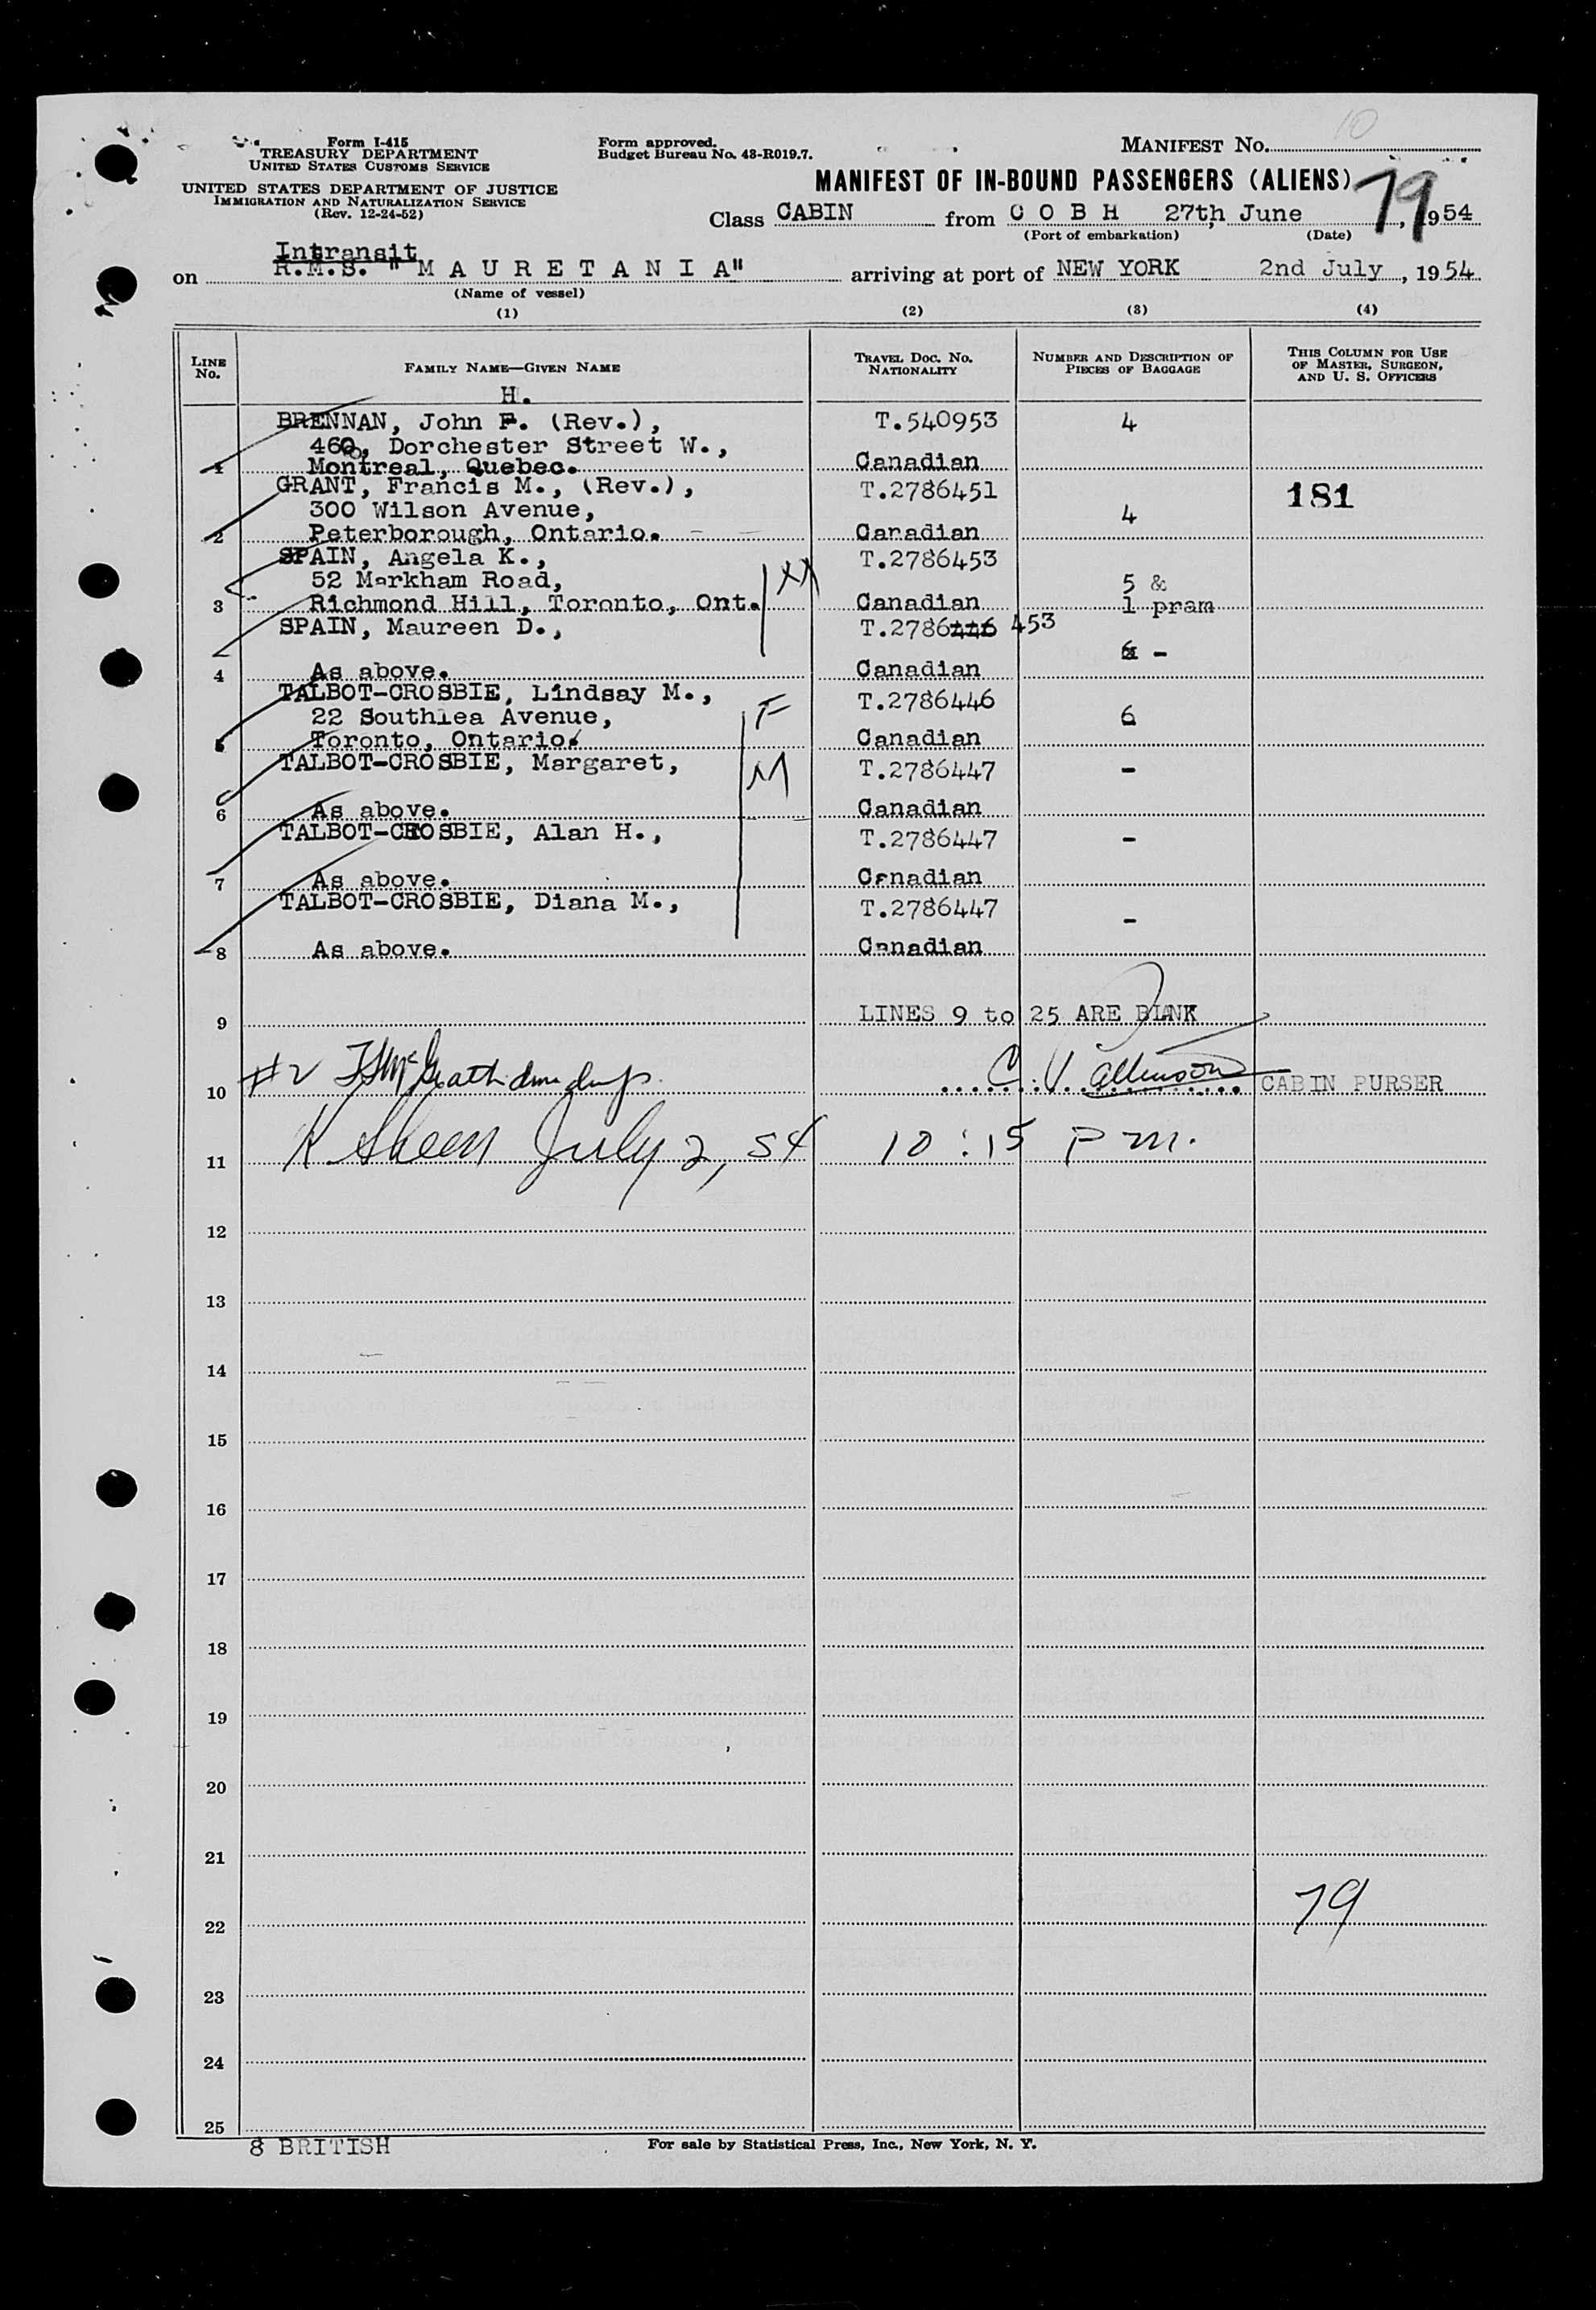 10
Form I-415
TREASURY DEPARTMENT
UNITED STATES CUSTOMS SERVICE
UNITED STATES DEPARTMENT OF JUSTICE
IMMIGRATION AND NATURALIZATION SERVICE
(Rev. 12-24-52)
Form approved.
Budget Bureau No. 43-R019.7.
MANIFEST No.
MANIFEST OF IN-BOUND PASSENGERS (ALIENS)
79
Class CABIN from C O B H 27th June, 1954
(Port of embarkation) (Date)
Intransit
on R.M.S. "M A U R E T A N I A" arriving at port of NEW YORK 2nd July, 1954
(Name of vessel)
(1) (2) (3) (4)
LINE No. FAMILY NAME—GIVEN NAME TRAVEL DOC. No. NATIONALITY NUMBER AND DESCRIPTION OF PIECES OF BAGGAGE THIS COLUMN FOR USE OF MASTER, SURGEON, AND U. S. OFFICERS
H.
BRENNAN, John F. (Rev.), T.540953 4
460, Dorchester Street W.,
1 Montreal, Quebec. Canadian
GRANT, Francis M., (Rev.), T.2786451 181
300 Wilson Avenue, 4
2 Peterborough, Ontario. Canadian
SPAIN, Angela K., T.2786453
52 Markham Road, XX 5 &
3 Richmond Hill, Toronto, Ont. Canadian 1 pram
SPAIN, Maureen D., T.2786446 453
-
4 As above. Canadian
TALBOT-CROSBIE, Lindsay M., F T.2786446
22 Southlea Avenue, 6
5 Toronto, Ontario. Canadian
TALBOT-CROSBIE, Margaret, M T.2786447 -
6 As above. Canadian
TALBOT-CROSBIE, Alan H., T.2786447 -
7 As above. Canadian
TALBOT-CROSBIE, Diana M., T.2786447 -
8 As above. Canadian
9 LINES 9 to 25 ARE BLANK
10 #2 CABIN PURSER
11 July 2, 54 10:15 P m.
12
13
14
15
16
17
18
19
20
21
22 79
23
24
25
8 BRITISH For sale by Statistical Press, Inc., New York, N. Y.